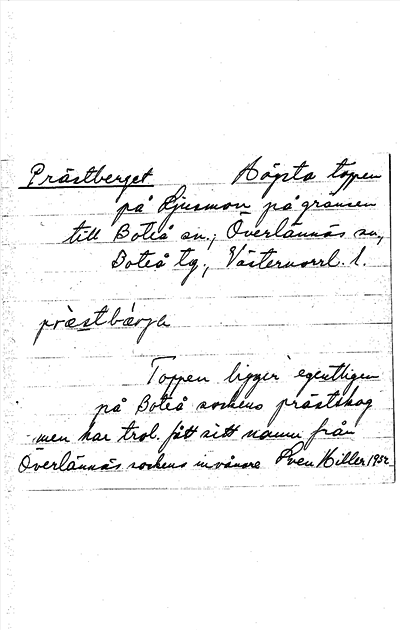 Prästberget Högsta toppen
på Ljusmon på gränsen
till Boteå sn., Överlännäs sn,
Boteå tg, Västernorrl. l.
præstbærje
Toppen ligger egentligen
på Boteå sockens prästskog
men har trol. fått sitt namn från
Överlännäs sockens invånare Sven Hiller 1952